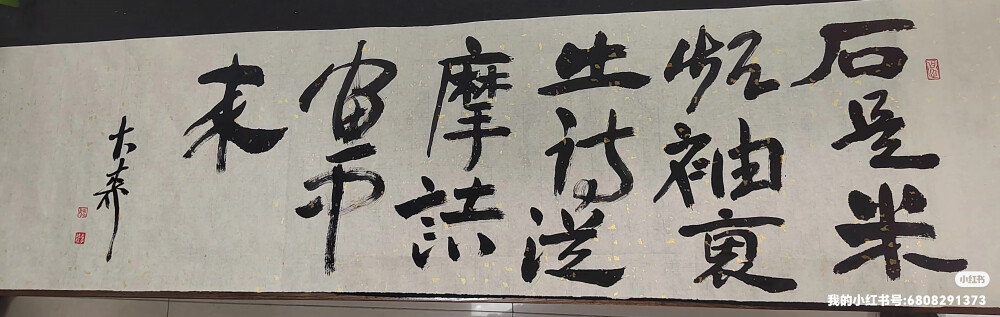 石是米
颠袖裏
出诗從
摩詰
画中
来
小红书
我的小红书号:6808291373